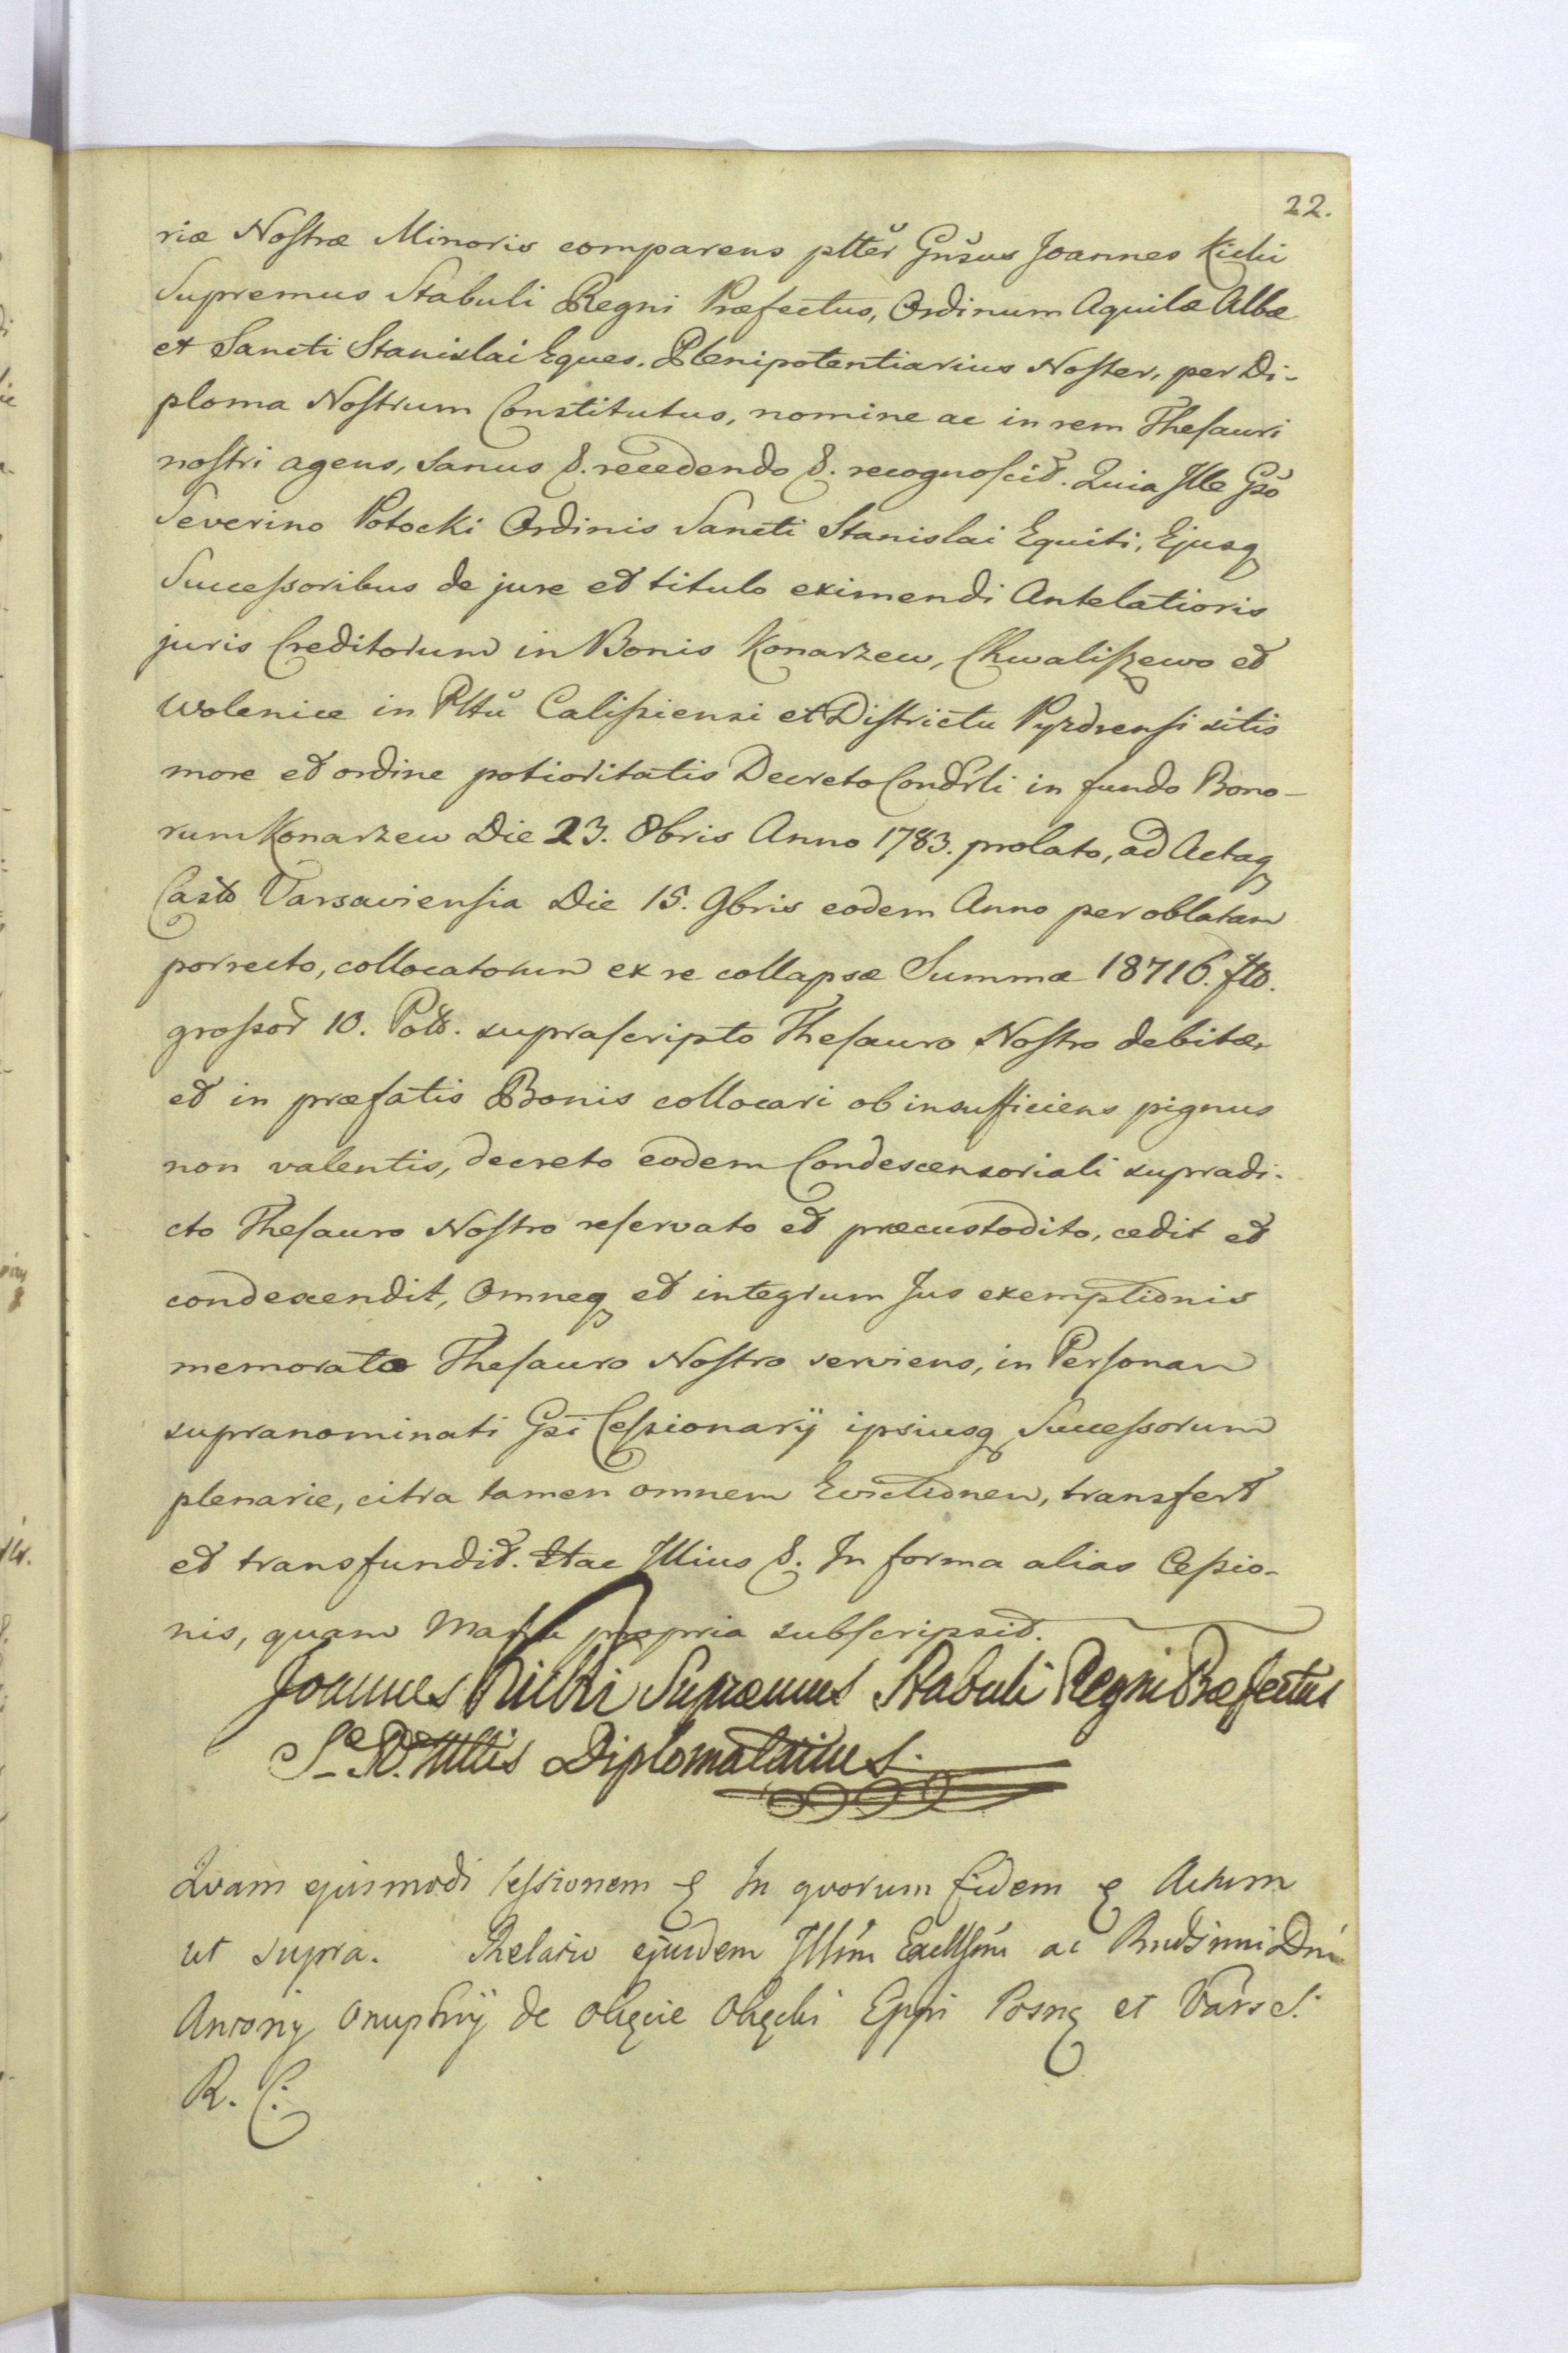 22.
riæ Nostræ Minoris comparens pltter Gnsus Joannes Kicki
Supremus Stabuli Regni Præfectus, Ordinum Aquilæ Albæ
et Sancti Stanislai Eques. Plenipotentiarius Noster, per Di-
ploma Nostrum Constitutus, nomine ac in rem Thesauri
nostri agens, sanus &. recedendo &. recognoscit. Quia Ille Gso
Severino Potocki Ordinis Sancti Stanislai Equiti, Ejusq
Successoribus de jure et titulo eximendi Antelationis
juris Creditorum in Bonis Konarzew, Chwaliszewo et
Wolenice in Plttu Calisiensi et Districtu Pyzdrensi sitis
more et ordine potioritatis Decreto Condrli in fundo Bono-
rum Konarzew Die 23. 8bris Anno 1783. prolato, ad Actaq
Castr Varsaviensia Die 15. 9bris eodem Anno per oblatam
porrecto, collocatorum ex re collapsæ Summæ 18716. fltt.
grossor 10. Poltt. suprascripto Thesauro Nostro debitæ,
et in præfatis Bonis collocari ob insufficiens pignus
non valentis, decreto eodem Condescensoriali supradi-
cto Thesauro Nostro reservato et præcustodito, cedit et
condescendit, Omneq et integrum Jus exemptionis
memorato Thesauro Nostro serviens, in Personam
supranominati Gsi Cessionarij ipsiusq Successorum
plenarie, citra tamen omnem Evictionem, transfert
et transfundit. Stae Illius &. In forma alias Cessio-
nis, quam Manu propria subscripsit.
Joannes Kicki Supremus Stabuli Regni Præfectus
S. R. Mttis Diplomatarius.
Quam ejusmodi Cessionem & In quorum Fidem & Actum
ut supra. Relatio ejusdem Illsmi Excllsmi ac Rndsimi Dni
Antonij Onuphrij de Okęcie Okęcki Eppi Posn et Vars S.
R. C.